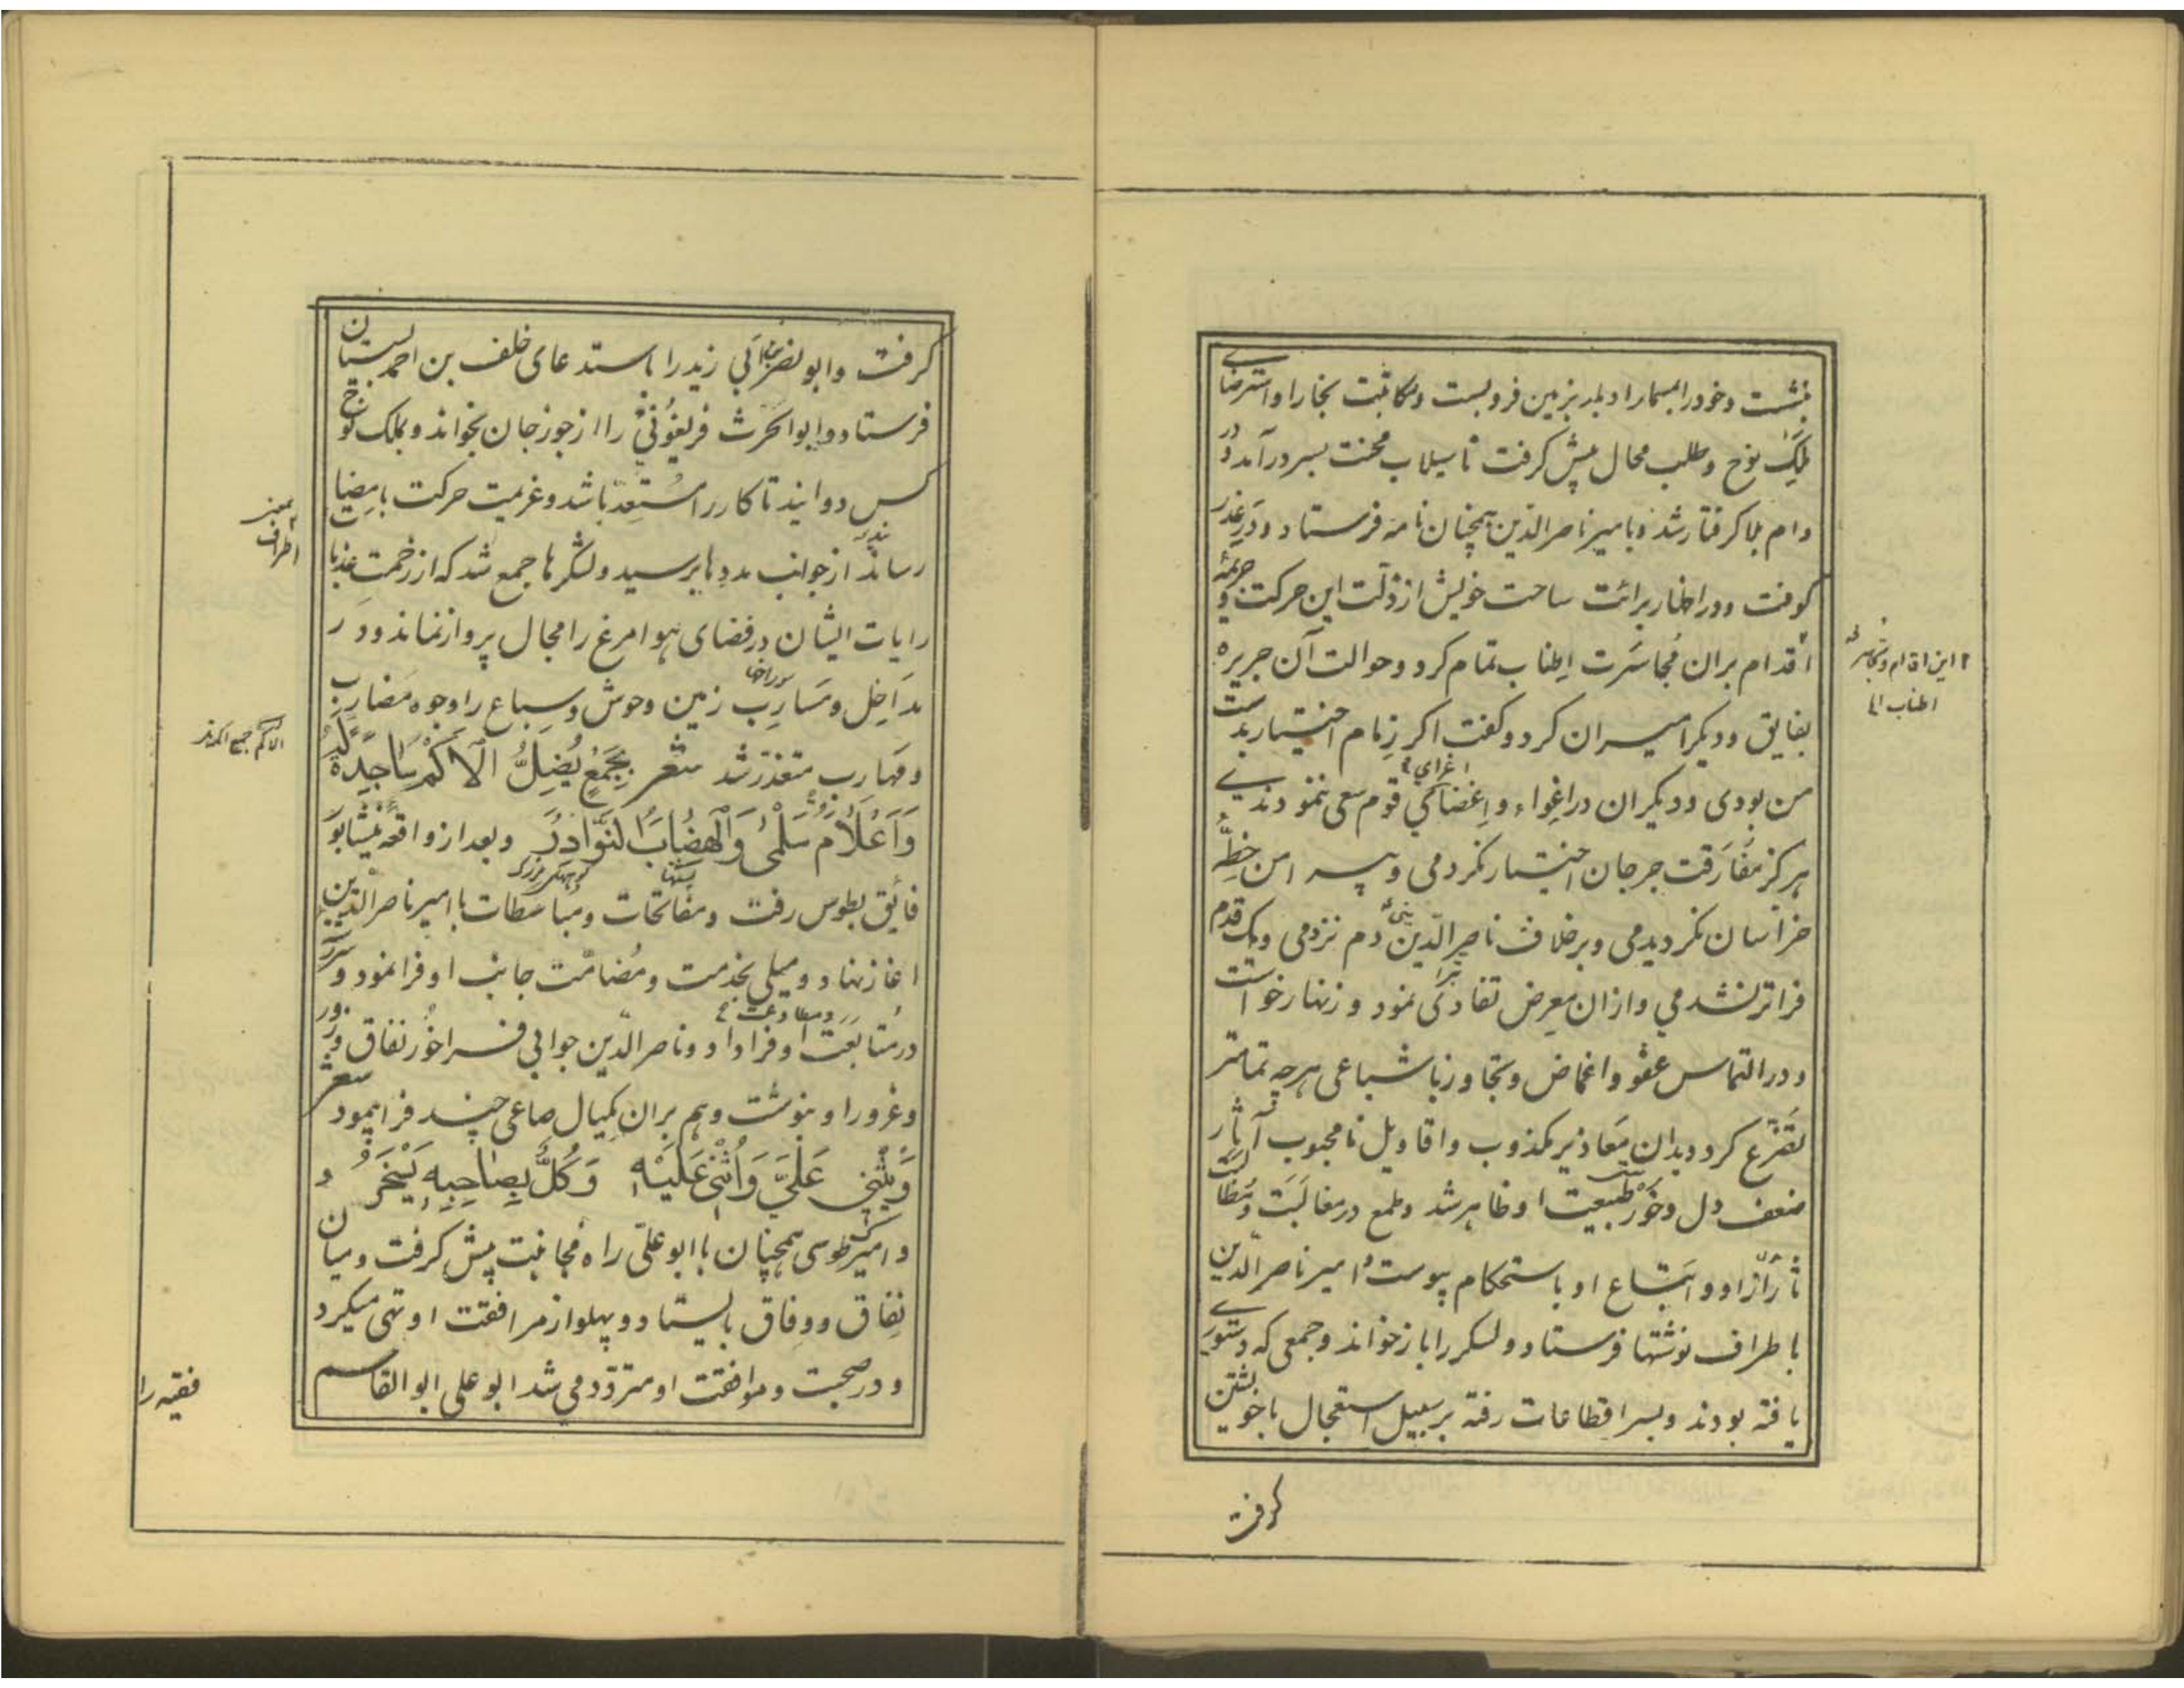 بنشست وخود را بمسمار ادبار بر زمین فروبست ومکاتبت بخارا واسترضاے
ملک نوح وطلب محال پیش گرفت تا سیلاب محنت بسر درآمد ودر
دام بلا گرفتار شد وبامیر ناصرالدین همچنان نامه فرستاد ودر عذر
کوفت ودر اظهار برائت ساحت خویش از ذلت این حرکت وجریمهٔ
اقدام بران مُجاسَرت اِطناب تمام کرد وحوالت آن جریره
بفایق ودیگر امیران کرد وگفت اگر زِمام اختیار بدست
من بودی ودیگران در اِغواء واِغضاکی قوم سعی ننمودندے
اغرای
هرگز مُفارَقت جرجان اختیار نکردمی وپیرامن خِطّهٔ
خراسان نگردیدمی وبرخلاف ناصرالدین دم نزدمی ویک قدم
فراتر نشدمی وازان مَعرِض تفادی نمود وزنهار خواست
ودر التماس عفو واغماض وتجاوز باشباعی هرچه تمامتر
تَضَرّع کرد وبدان مَعاذیر مکذوب واقاویل نامحبوب آثار
ضعف دل وخَوَر طبیعت او ظاهر شد وطمع در مغالَبَت
او واتباع او باستحکام پیوست وامیر ناصرالدین
باطراف نوشتها فرستاد ولشکر را باز خواند وجمعی که دستورے
یافته بودند وبسر اقطاعات رفته بر سبیل استعجال باخویشتن
گرفت
این اقدام
اطناب الی
گرفت وابونصر بن ابی زید را باستدعای خلف بن احمد بسیستان
فرستاد وابوالحرث فریغونی را از جوزجان بخواند وبملک نوح
کس دوانید تا کار را مُستعِد باشد وعزیمت حرکت بامضا
رساند از جوانب مددها برسید ولشکرها جمع شد که از زحمت عذبات
رایات ایشان در فضای هوا مرغ را مجال پرواز نماند ودر
سوراخها
مداخِل ومَسارِب زمین وحوش وسِباع را وجوه مَضارِب
ومهارب متعذر شد شعر بِجَمْعٍ یُضِلُّ الاُکْمَ سَاجِدَةً لَهُ
وَاَعْلَامُ سَلْمٰی وَالْهِضَابُ النَّوَادِرُ وبعد از واقعهٔ نیشابور
فائق بطوس رفت ومفاتحات ومباسطات با امیر ناصرالدین
اغاز نهاد ومیلی بخدمت ومُضامّت جانب او فرا نمود
ومطاوعت
در مُتابَعت او فرا داد وناصرالدین جوابی فراخُور نفاق وزور
وغرور او بنوشت وهم بران مکیال صاعی چند فرا پیمود شعر
وَیُثْنِی عَلَیَّ وَاُثْنِی عَلَیْهِ وَکُلٌّ بِصَاحِبِهِ یَسْخَرُ
وامیرک طوسی همچنان با ابوعلی راه مُجانبت پیش گرفت ومیان
نِفاق ووِفاق بایستاد وپهلو از مرافقت او تهی میکرد
ودر صحبت وموافقت او متردد می شد ابوعلی ابوالقاسم
اطراف
الاکم جمع اکمه
فقیه را